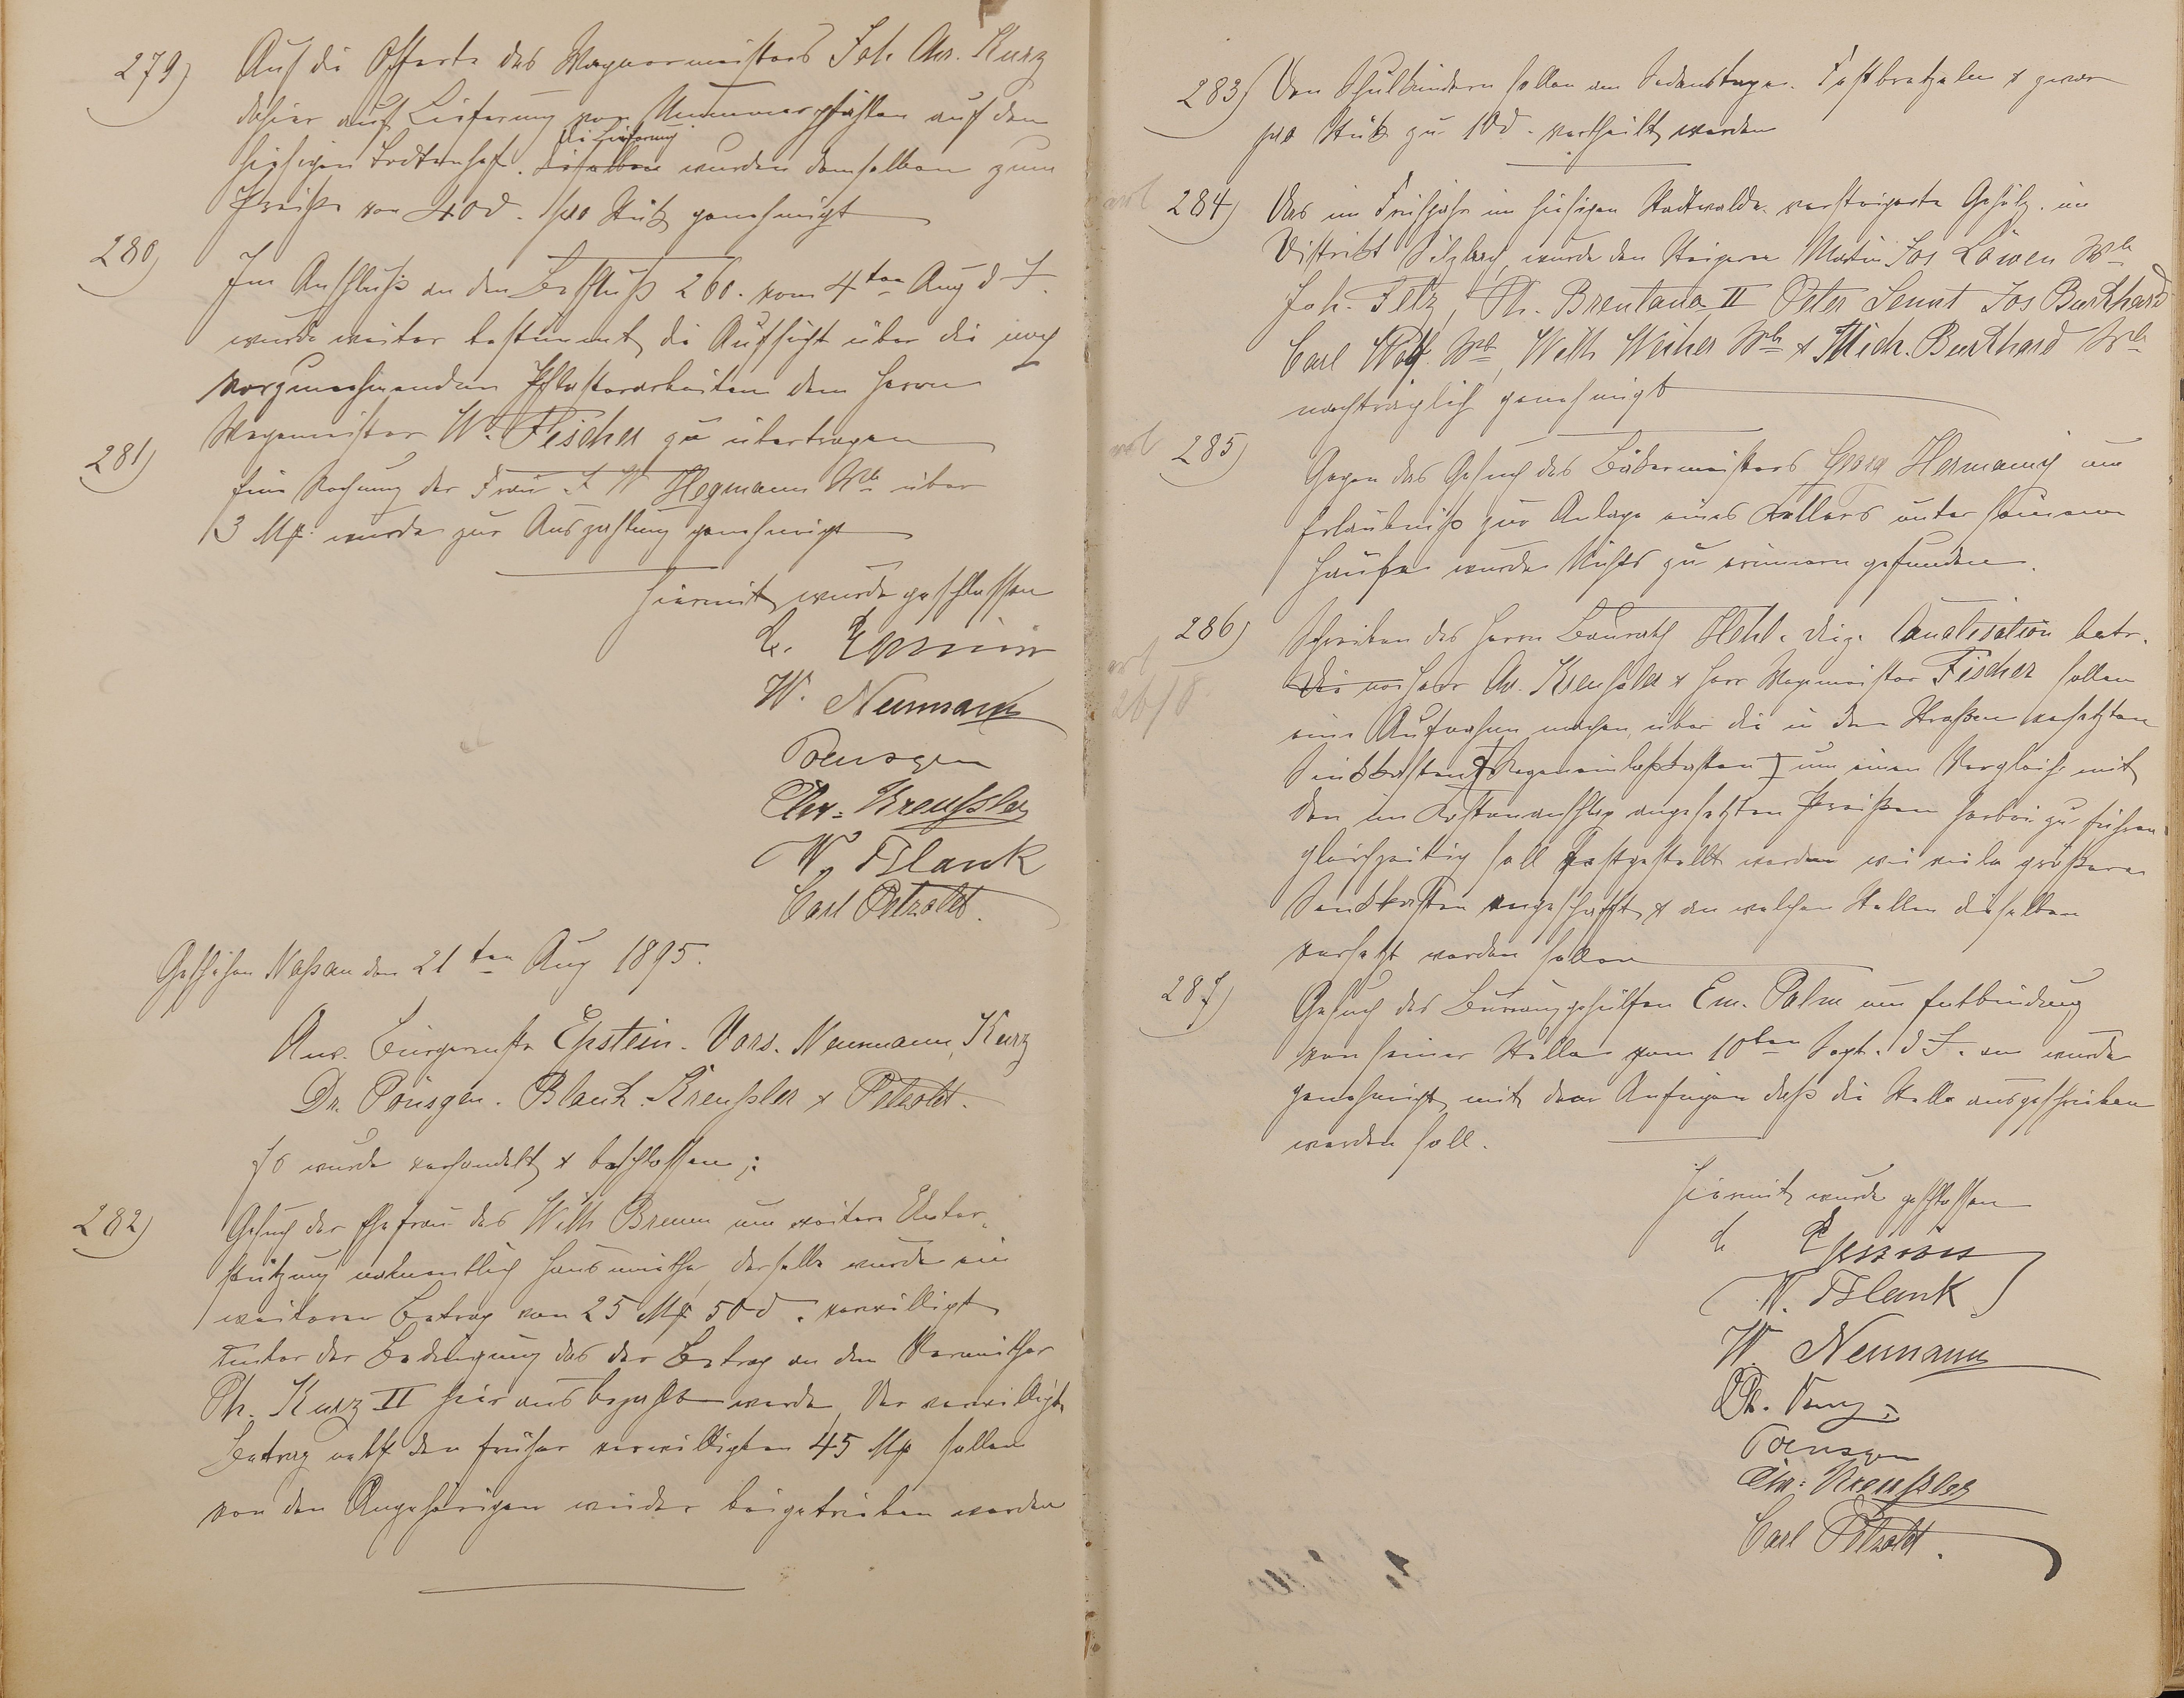 279) Auf die Offerte des Wagnermeisters Joh. Chr. Kurz
dahier auf Lieferung von Nummerpfählen auf dem
die Lieferung
hiesigen Todtenhof. dieselben wurden demselben zum
Preise von 40 d. pro Stük genehmigt
280) Im Anschluß an den Beschluß 260. vom 4ten Aug d J.
wurde weiter bestimmt, die Aufsicht über die noch
vorzunehmenden Pflasterarbeiten dem Herrn
Wegemeister W. Fischer zu übertragen
281) Eine Rechnung der Frau F W Hegmann Wb über
3 Mk. wurde zur Auszahlung genehmigt
Hiermit wurde geschlossen
C. Epstein
W. Neumann
Poensgen
Chr. Kreußler
W. Blank
Carl Petzoldt.
Geschehen Naßau den 21ten Aug 1895.
Anw. Bürgermstr Epstein. Vors. Neumann, Kurz
Dr. Pönsgen. Blank. Kreußler & Petzoldt.
Es wurde verhandelt & beschlossen;:
282) Gesuch der Ehefrau des Wilh Bremm um weitere Unter-
stützung namentlich Hausmiethe, derselbe wurde ein
weiterer Betrag von 25 Mk 50 d. verwilligt
unter der Bedingung das der Betrag an den Vermiether
Ph. Kurz II hier ausbezahlt werde. Der verwilligte
Betrag nebst den früher verwilligten 45 Mk sollen
von den Angehörigen wieder beigetrieben werden
283) Den Schulkindern sollen am Sedanstage. Festbretzeln & zwar
pro Stük zu 10 d. vertheilt werden
284) Das im Frühjahr im hiesigen Stadtwalde versteigerte Gehölz. im
Distrikt, wurde den Steigerer Martin Jos Löwen Wb
Joh. Feltz, Ph. Brentano II Peter Sennt Jos Burkhard
Carl Wolf Wb, Wilh Weiher Wb & Mich. Burkhard Wb
nachträglich genehmigt
285) Gegen das Gesuch des Bäkermeisters Georg Hermany um
Erlaubniß zur Anlage eines Kellers unter seinem
Hause wurde Nichts zu erinnern gefunden.
286) Schreiben des Herrn Baurath Hehl. Canalisation betr.
Die von Herr Chr. Kreußler & Herr Wegemeister Fischer sollen
eine Aufnahme machen, über die in den Straßen versetzten
Sinkkasten (Regeneinlaßkasten) um einen Vergleich mit
den im Kostenanschlag angesetzten Preißen herbei zu führen
gleichzeitig soll festgestellt werden wie viele größere
Senkkasten angeschafft & an welchen Stellen dieselben
versetzt werden sollen
287) Gesuch des Bureaugehülfen Em. Palm um Entbindung
von seiner Stelle vom 10ten Sept. d J. an wurde
genehmigt, mit dem Anfügen daß die Stelle ausgeschrieben
werden soll.
Hiermit wurde geschlossen
C Epstein
W. Blank
W. Neumann
Poensgen
Chr. Kreußler
Carl Petzoldt.